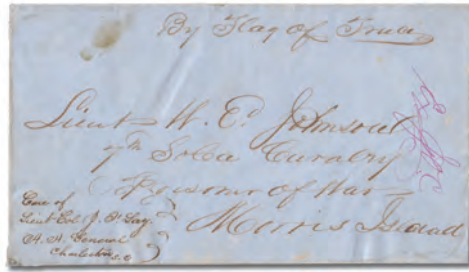 By Flag of Truce
Lieut W. P. Johnson
7th Cavalry
Prisoner of War
Morris Island
Care of
Lieut Col. J. F. Lay
A. A. General
Charleston S. C